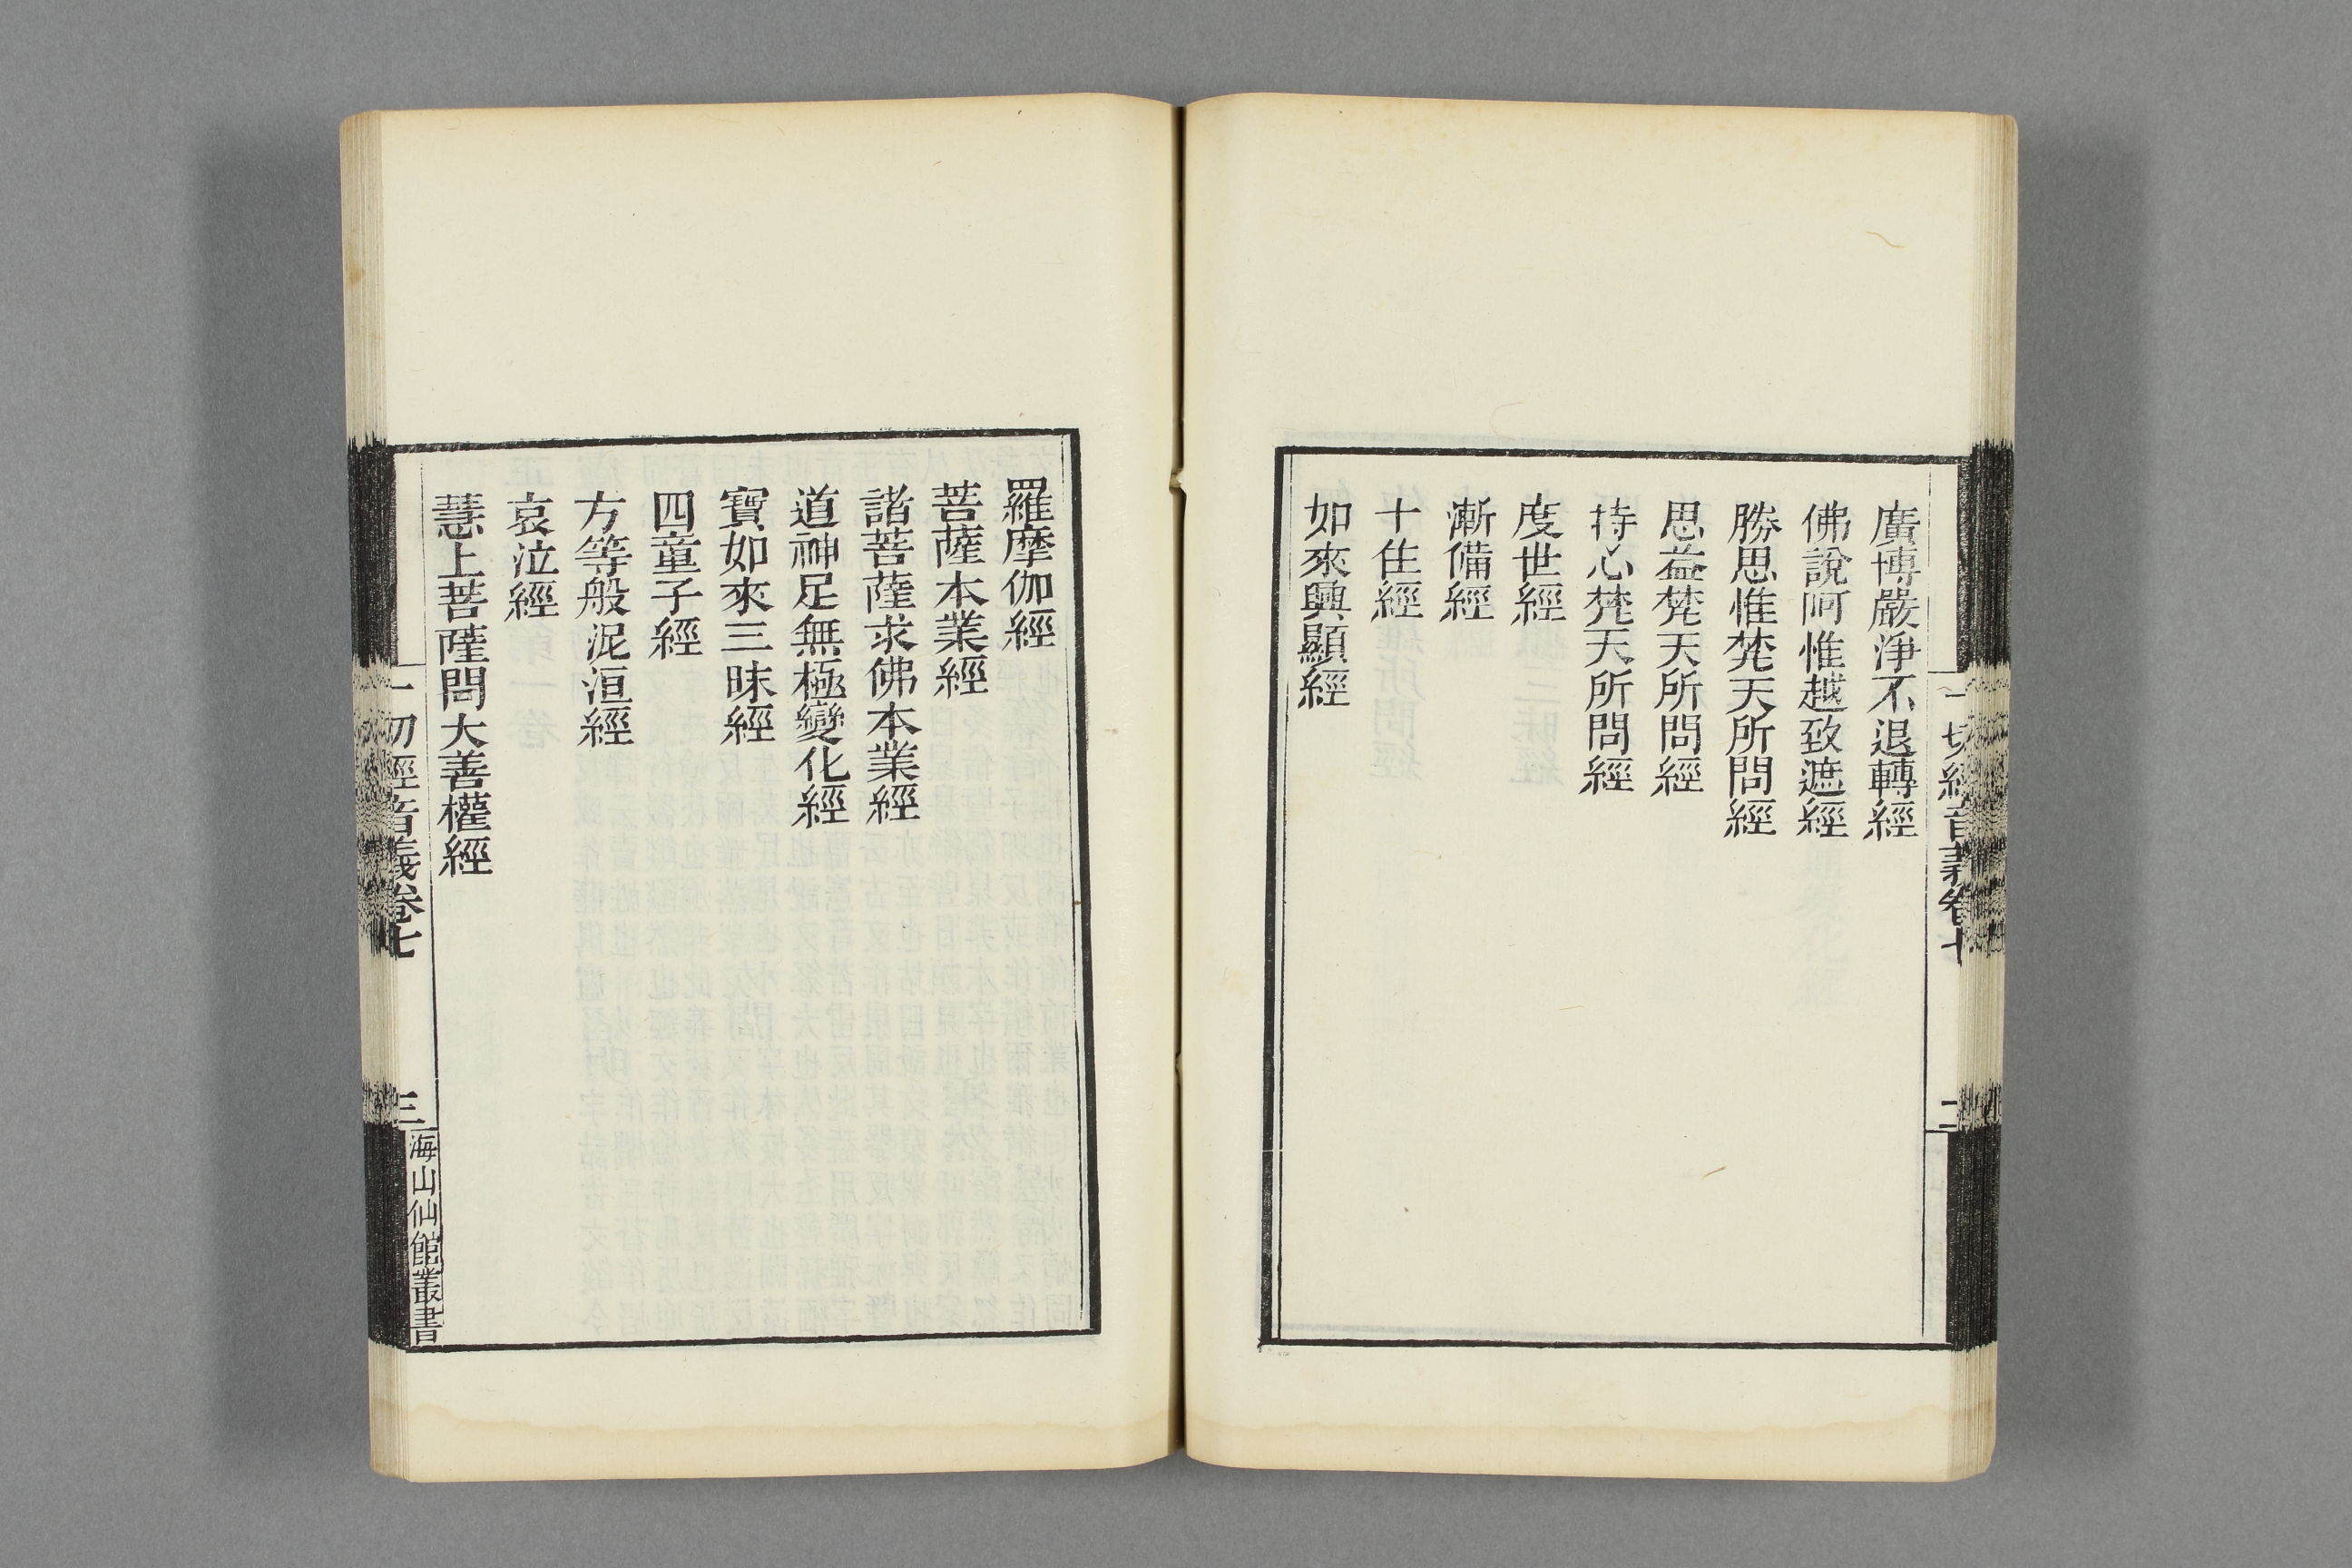 一切經音義卷七
二
廣博嚴淨不退轉經
佛說阿惟越致遮經
勝思惟梵天所問經
思益梵天所問經
持心梵天所問經
度世經
漸備經
十住經
如來興顯經
羅摩伽經
菩薩本業經
諸菩薩求佛本業經
道神足無極變化經
寶如來三昧經
四童子經
方等般泥洹經
哀泣經
慧上菩薩問大善權經
一切經音義卷七
三
海山仙館叢書